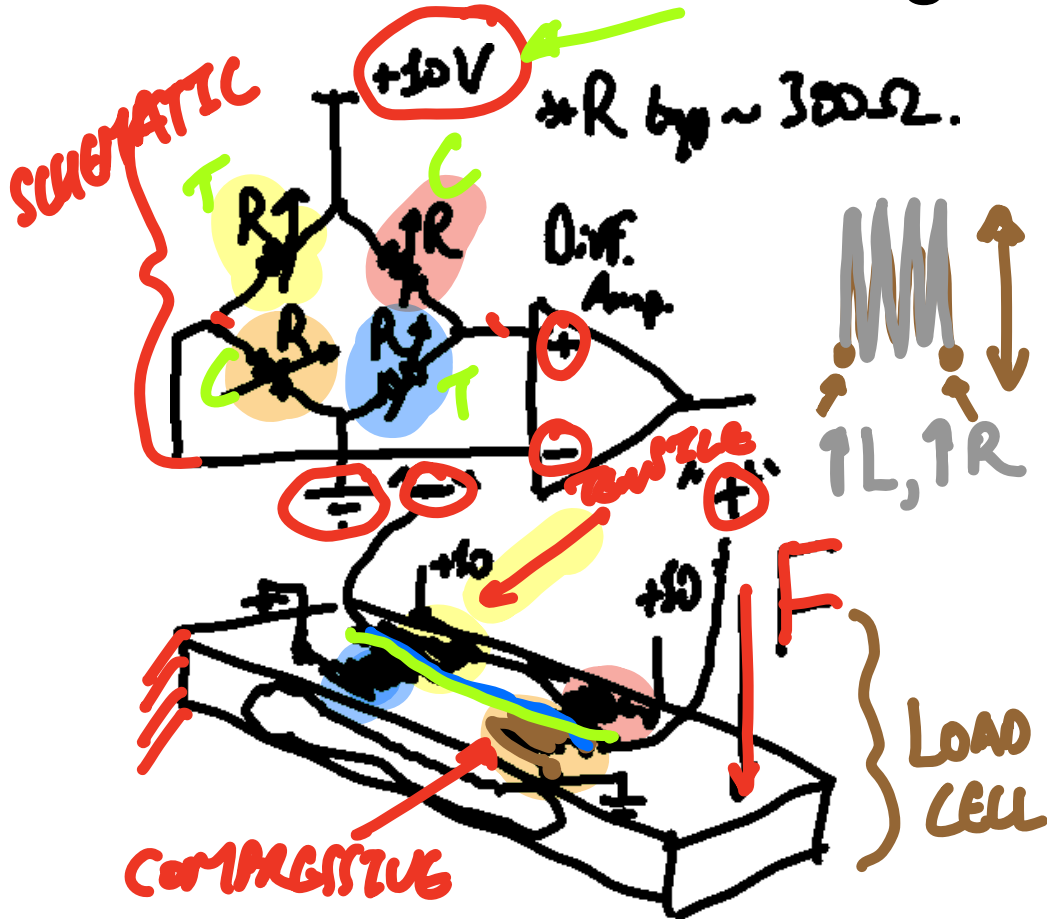 SCHEMATIC
+10V
*R typ ~ 300Ω.
T
C
R
R
Diff.
Amp.
R
R
C
T
+
-
↑L, ↑R
TENSILE
-
"+"
+10
+10
F
LOAD
CELL
COMPRESSIVE